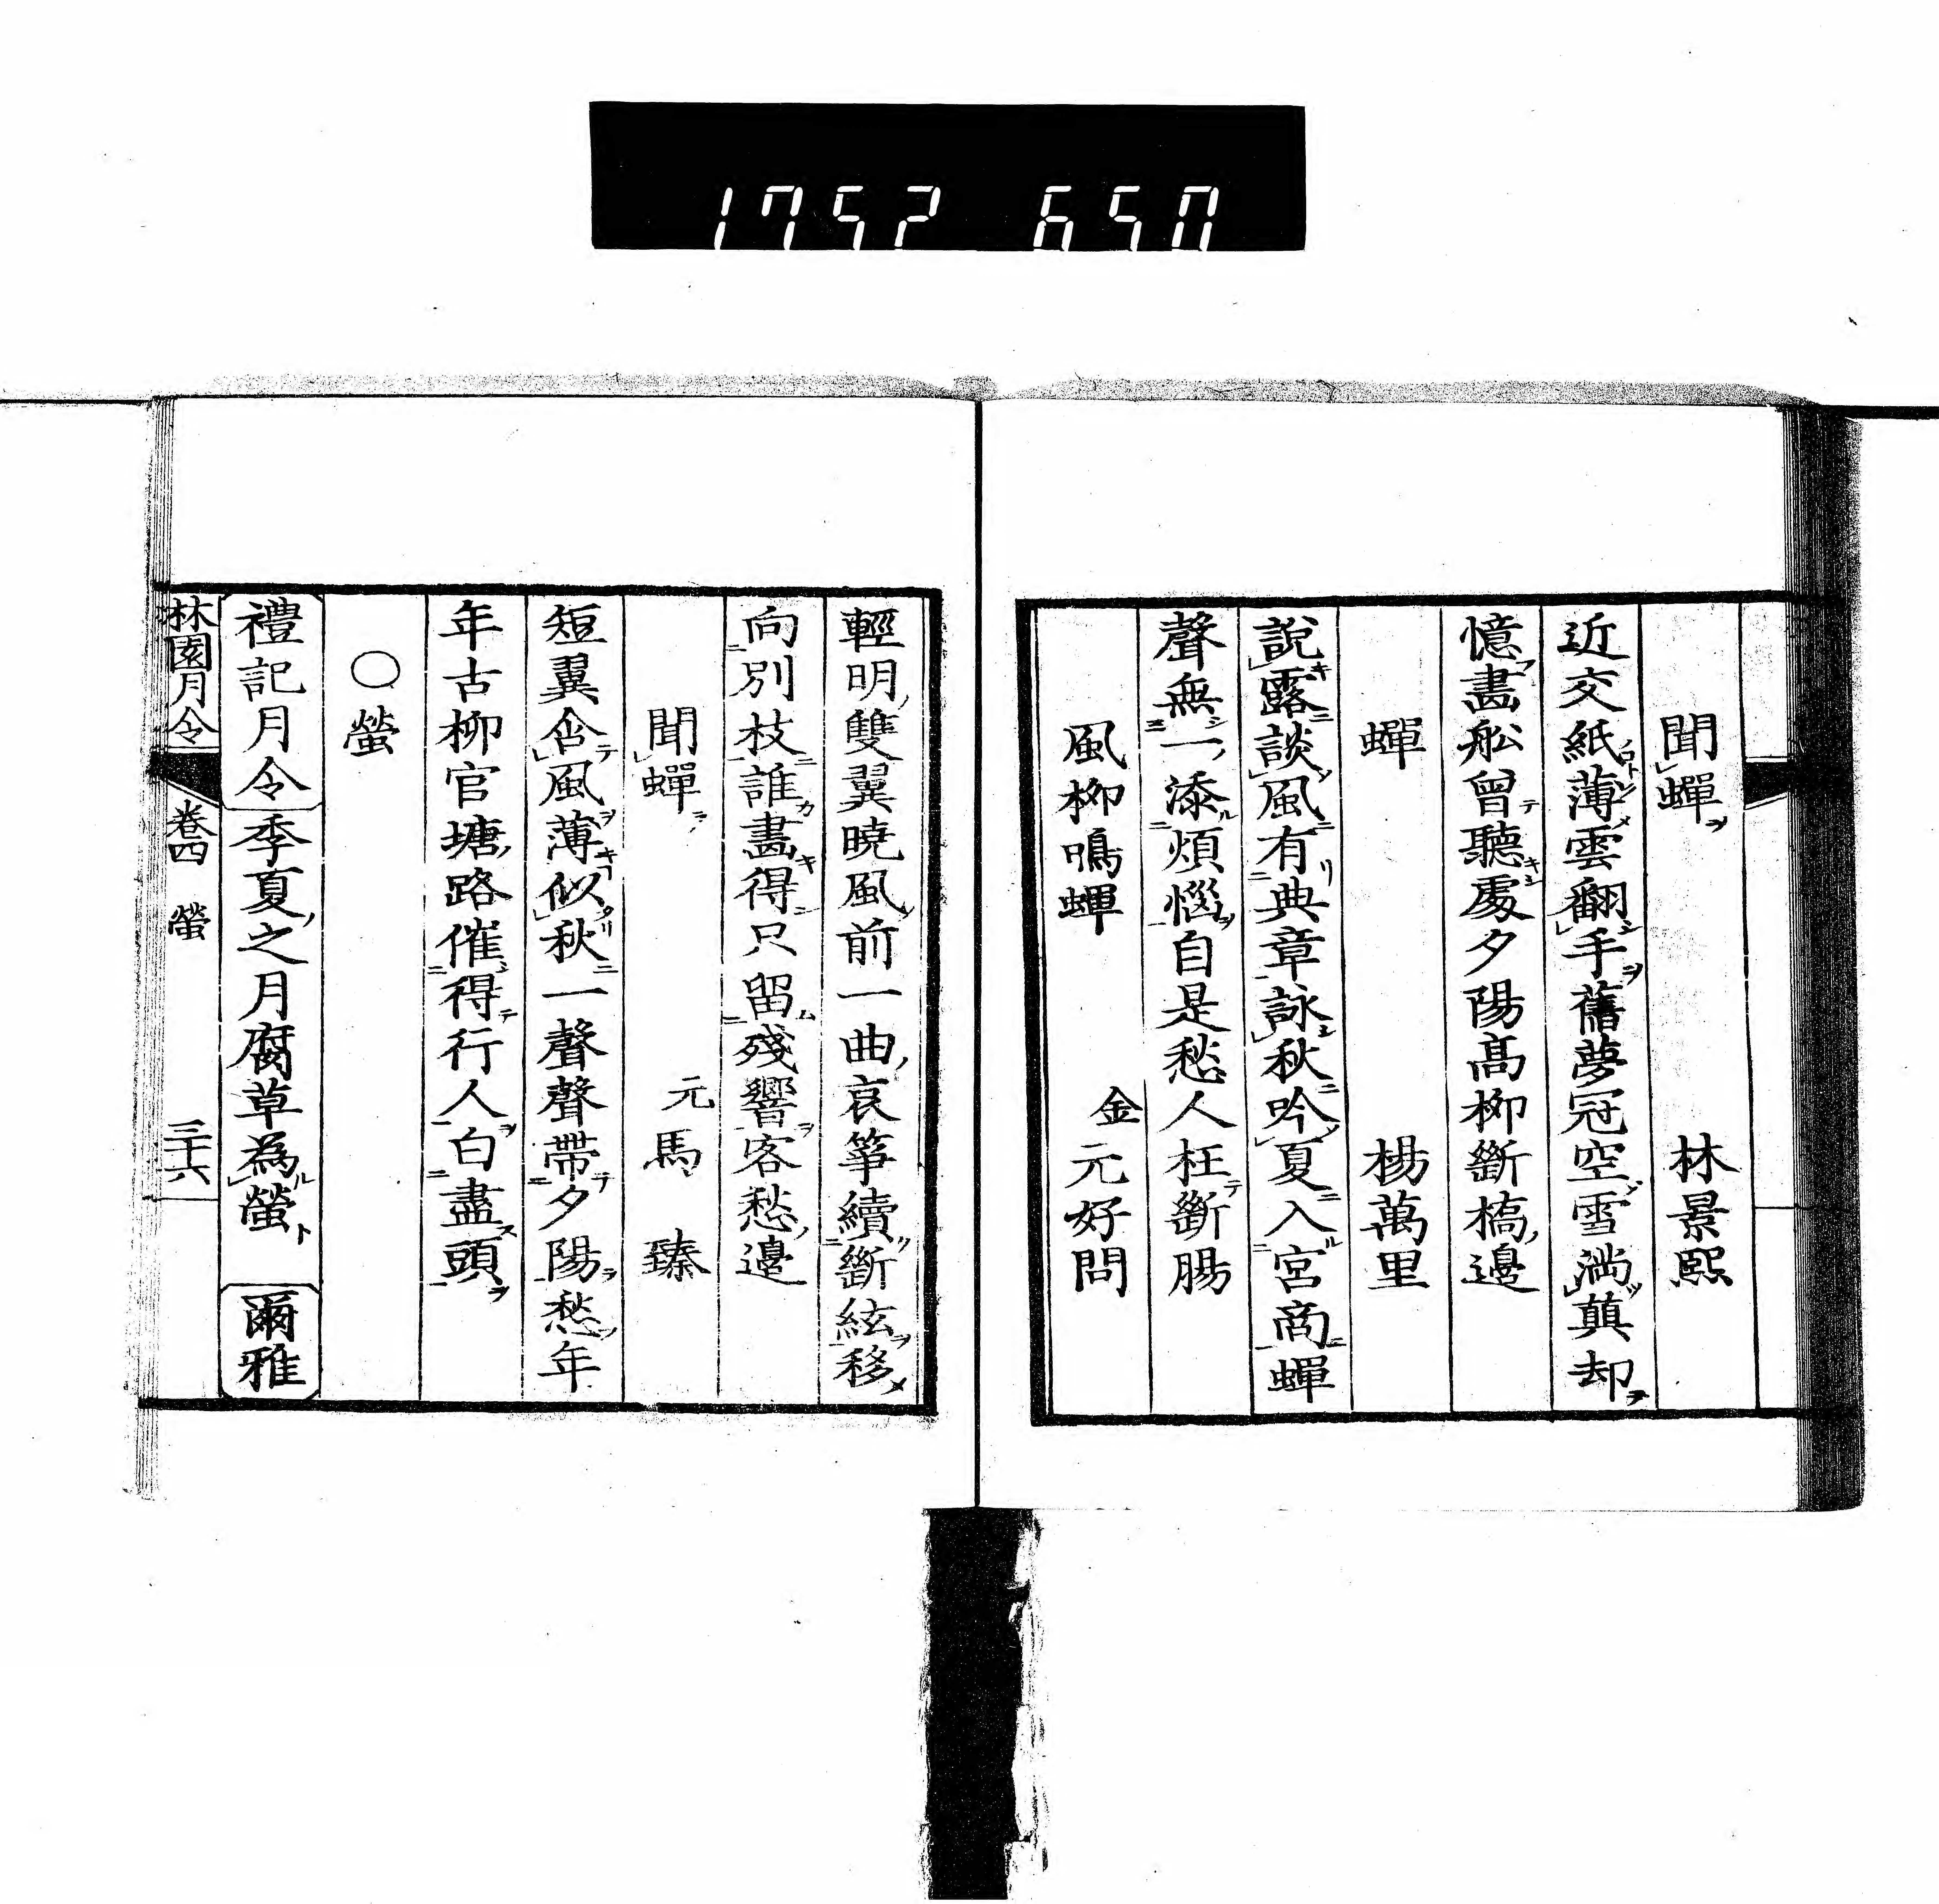 1752 650
聞蟬 林景熙
近交紙薄雲翻手舊夢冠空雪滿顛却
憶畵船曾聽處夕陽高柳斷橋邊
蟬 楊萬里
說露談風有典章詠秋吟夏入宮商蟬
聲無一添煩惱自是愁人枉斷腸
風柳鳴蟬 金元好問
輕明雙翼曉風前一曲哀箏續斷絃移
向別枝誰畵得只留殘響客愁邊
聞蟬 元馬臻
短翼含風薄似秋一聲聲帶夕陽愁年
年古柳官塘路催得行人白盡頭
○螢
禮記月令季夏之月腐草為螢 爾雅
林園月令 卷四 螢 三十六